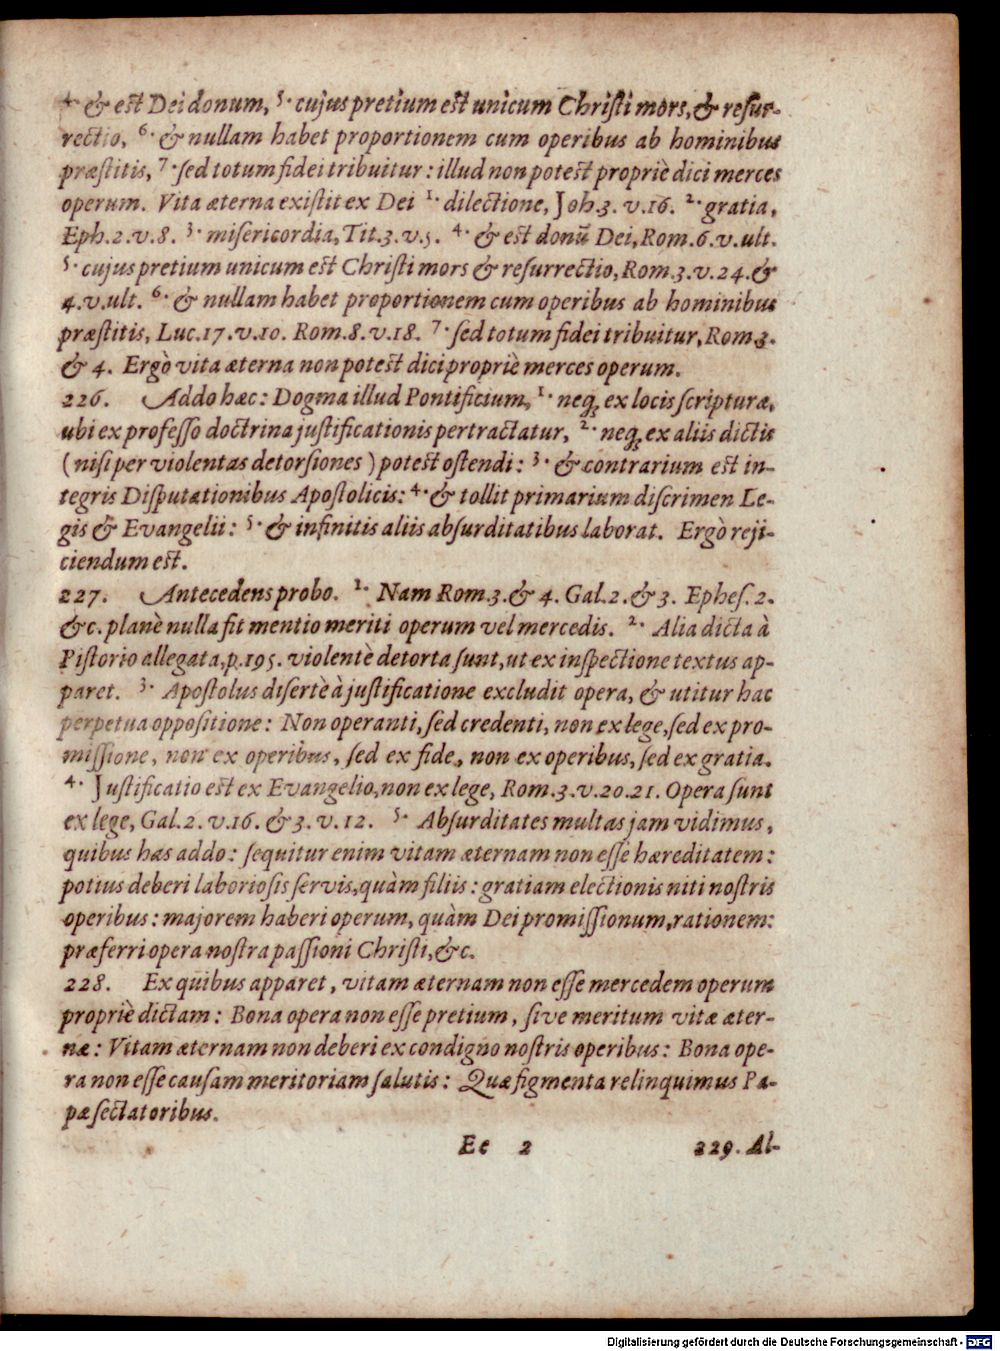 4. & est Dei donum, 5. cujus pretium est unicum Christi mors, & resur-
rectio, 6. & nullam habet proportionem cum operibus ab hominibus
præstitis, 7. sed totum fidei tribuitur: illud non potest propriè dici merces
operum. Vita æterna existit ex Dei 1. dilectione, Joh. 3. v. 16. 2. gratia,
Eph. 2. v. 8. 3. misericordia, Tit. 3. v. 5. 4. & est donũ Dei, Rom. 6. v. ult.
5. cujus pretium unicum est Christi mors & resurrectio, Rom. 3. v. 24. &
4. v. ult. 6. & nullam habet proportionem cum operibus ab hominibus
præstitis, Luc. 17. v. 10. Rom. 8. v. 18. 7. sed totum fidei tribuitur, Rom. 3.
& 4. Ergò vita æterna non potest dici propriè merces operum.
226. Addo hæc: Dogma illud Pontificium, 1. neq; ex locis scripturæ,
ubi ex professo doctrina justificationis pertractatur, 2. neq; ex aliis dictis
(nisi per violentas detorsiones) potest ostendi: 3. & contrarium est in-
tegris Disputationibus Apostolicis: 4. & tollit primarium discrimen Le-
gis & Evangelii: 5. & infinitis aliis absurditatibus laborat. Ergò reji-
ciendum est.
227. Antecedens probo. 1. Nam Rom. 3. & 4. Gal. 2. & 3. Ephes. 2.
&c. planè nulla fit mentio meriti operum vel mercedis. 2. Alia dicta à
Pistorio allegata, p. 195. violentè detorta sunt, ut ex inspectione textus ap-
paret. 3. Apostolus disertè à justificatione excludit opera, & utitur hac
perpetua oppositione: Non operanti, sed credenti, non ex lege, sed ex pro-
missione, non ex operibus, sed ex fide, non ex operibus, sed ex gratia.
4. Justificatio est ex Evangelio, non ex lege, Rom. 3. v. 20. 21. Opera sunt
ex lege, Gal. 2. v. 16. & 3. v. 12. 5. Absurditates multas jam vidimus,
quibus has addo: sequitur enim vitam æternam non esse hæreditatem:
potius deberi laboriosis servis, quàm filiis: gratiam electionis niti nostris
operibus: majorem haberi operum, quàm Dei promissionum, rationem:
præferri opera nostra passioni Christi, &c.
228. Ex quibus apparet, vitam æternam non esse mercedem operum
propriè dictam: Bona opera non esse pretium, sive meritum vitæ æter-
næ: Vitam æternam non deberi ex condigno nostris operibus: Bona ope-
ra non esse causam meritoriam salutis: Quæ figmenta relinquimus Pa-
pæ sectatoribus.
Ee 2 229. Al-
Digitalisierung gefördert durch die Deutsche Forschungsgemeinschaft - DFG